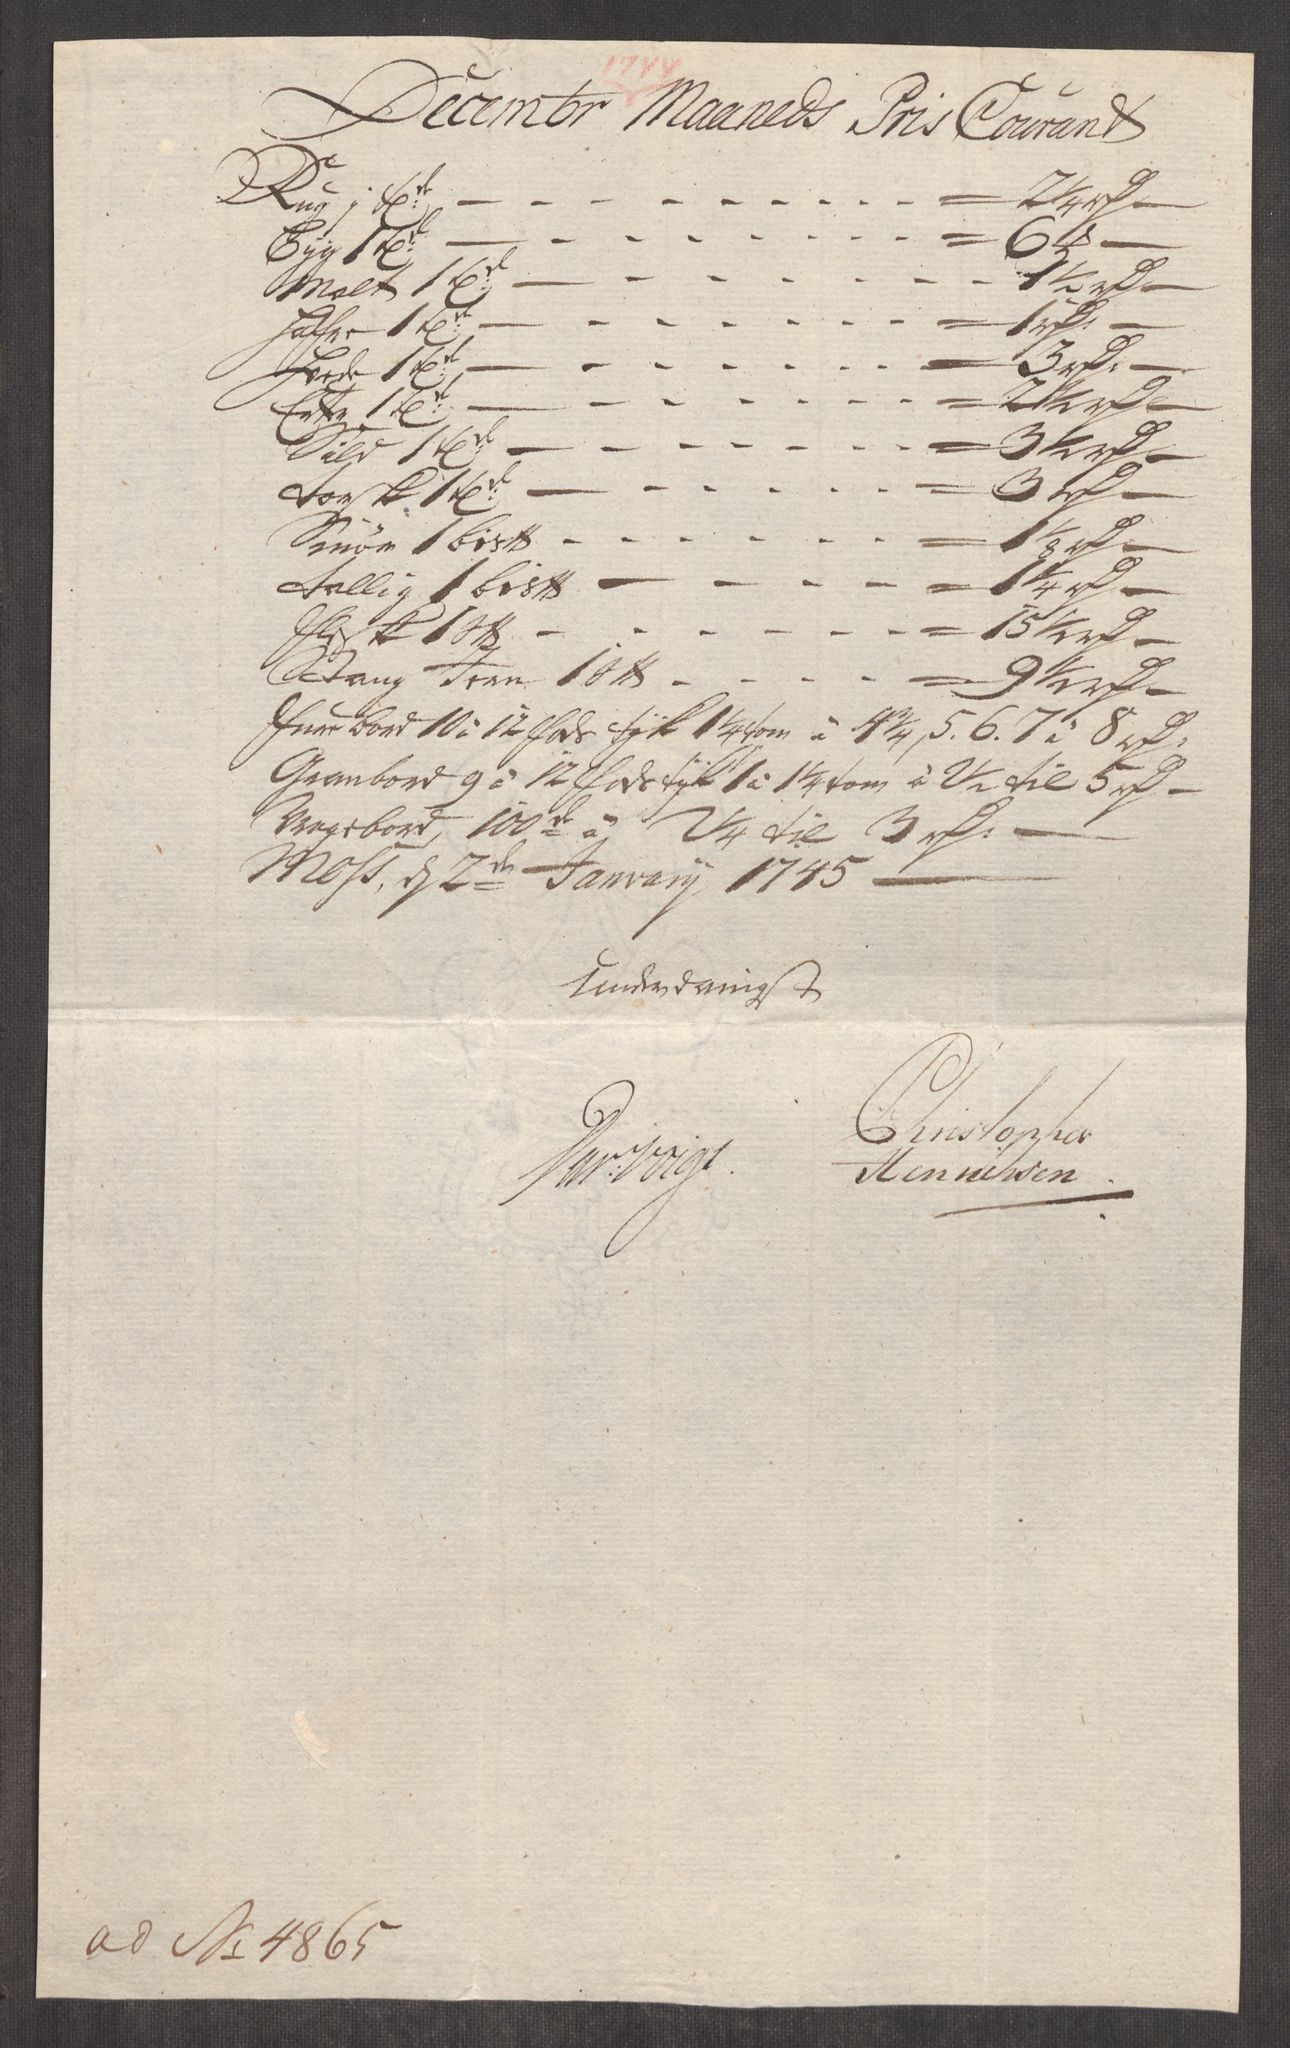 1744
December Maaneds Pris Courant
Rug 1 td: - - - - - - - - = 2 1/4 rd —
Byg 1 td: — - - - - - - - = 6 —
Malt 1 td: — - - - - - - - - 1 1/2 rd —
Hafre 1 td: — - - - - - - - = 1 rd: —
Hvede 1 td: — - - - - - - = 3 rd: —
Erter 1 td: — - - - - - - - = 2 1/2 rd —
Sild 1 td: — - - - - - - = 3 1/2 rd —
Torsk 1 td: — - - - - - - = 3 rd —
Smør 1 bis℔ - - - - - - - = 1 1/8 rd: —
Tallig 1 bis℔ — - - - - - = 1 1/4 rd —
Flesk 1 s℔ - - - - - - - = 15 1/2 rd —
Stang Jern 1 s℔ - - - - - = 9 1/2 rd —
Furrebord 10 à 12 fods tyk 1 1/4 tom à 4 3/4, 5. 6. 7 à 8 rd:
Granbord 9 à 12 fods tyk 1 à 1 1/4 tom à 2 1/2 til 5 rd —
Vragebord, 100de à 2 1/4 til 3 rd: —
Moss, d 2den January 1745 —
Underdanigst
Voigt.
Christopher
Hennichsen.
ad No 4865